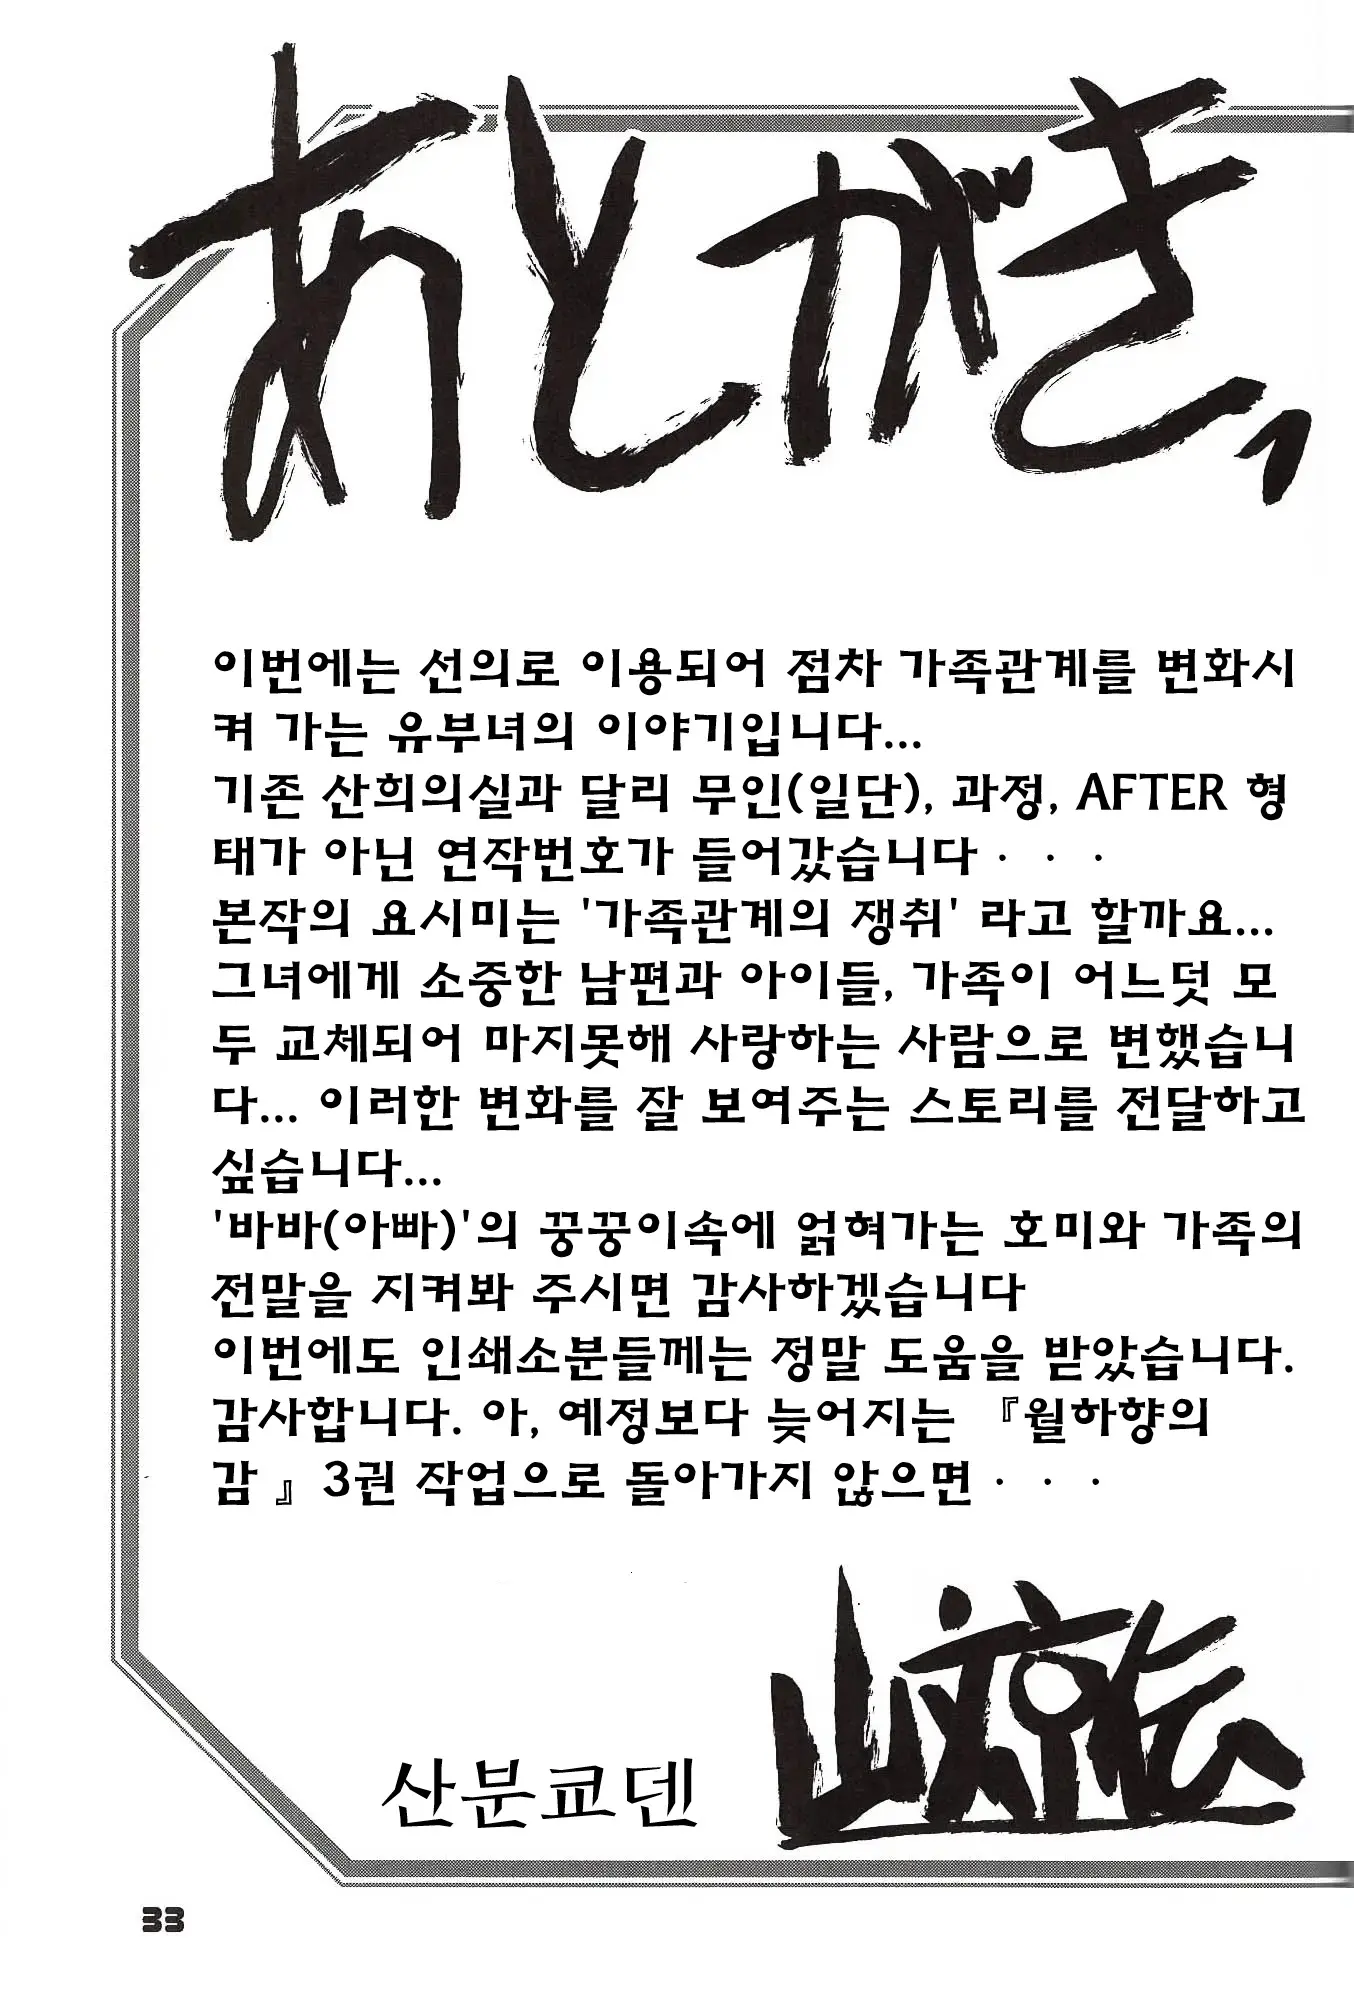 あとがき、
이번에는 선의로 이용되어 점차 가족관계를 변화시
켜 가는 유부녀의 이야기입니다...
기존 산희의실과 달리 무인(일단), 과정, AFTER 형
태가 아닌 연작번호가 들어갔습니다 · · ·
본작의 요시미는 '가족관계의 쟁취' 라고 할까요...
그녀에게 소중한 남편과 아이들, 가족이 어느덧 모
두 교체되어 마지못해 사랑하는 사람으로 변했습니
다... 이러한 변화를 잘 보여주는 스토리를 전달하고
싶습니다...
'바바(아빠)'의 꿍꿍이속에 얽혀가는 호미와 가족의
전말을 지켜봐 주시면 감사하겠습니다
이번에도 인쇄소분들께는 정말 도움을 받았습니다.
감사합니다. 아, 예정보다 늦어지는 『월하향의
감 』 3권 작업으로 돌아가지 않으면 · · ·
산분교덴
山文京伝
33